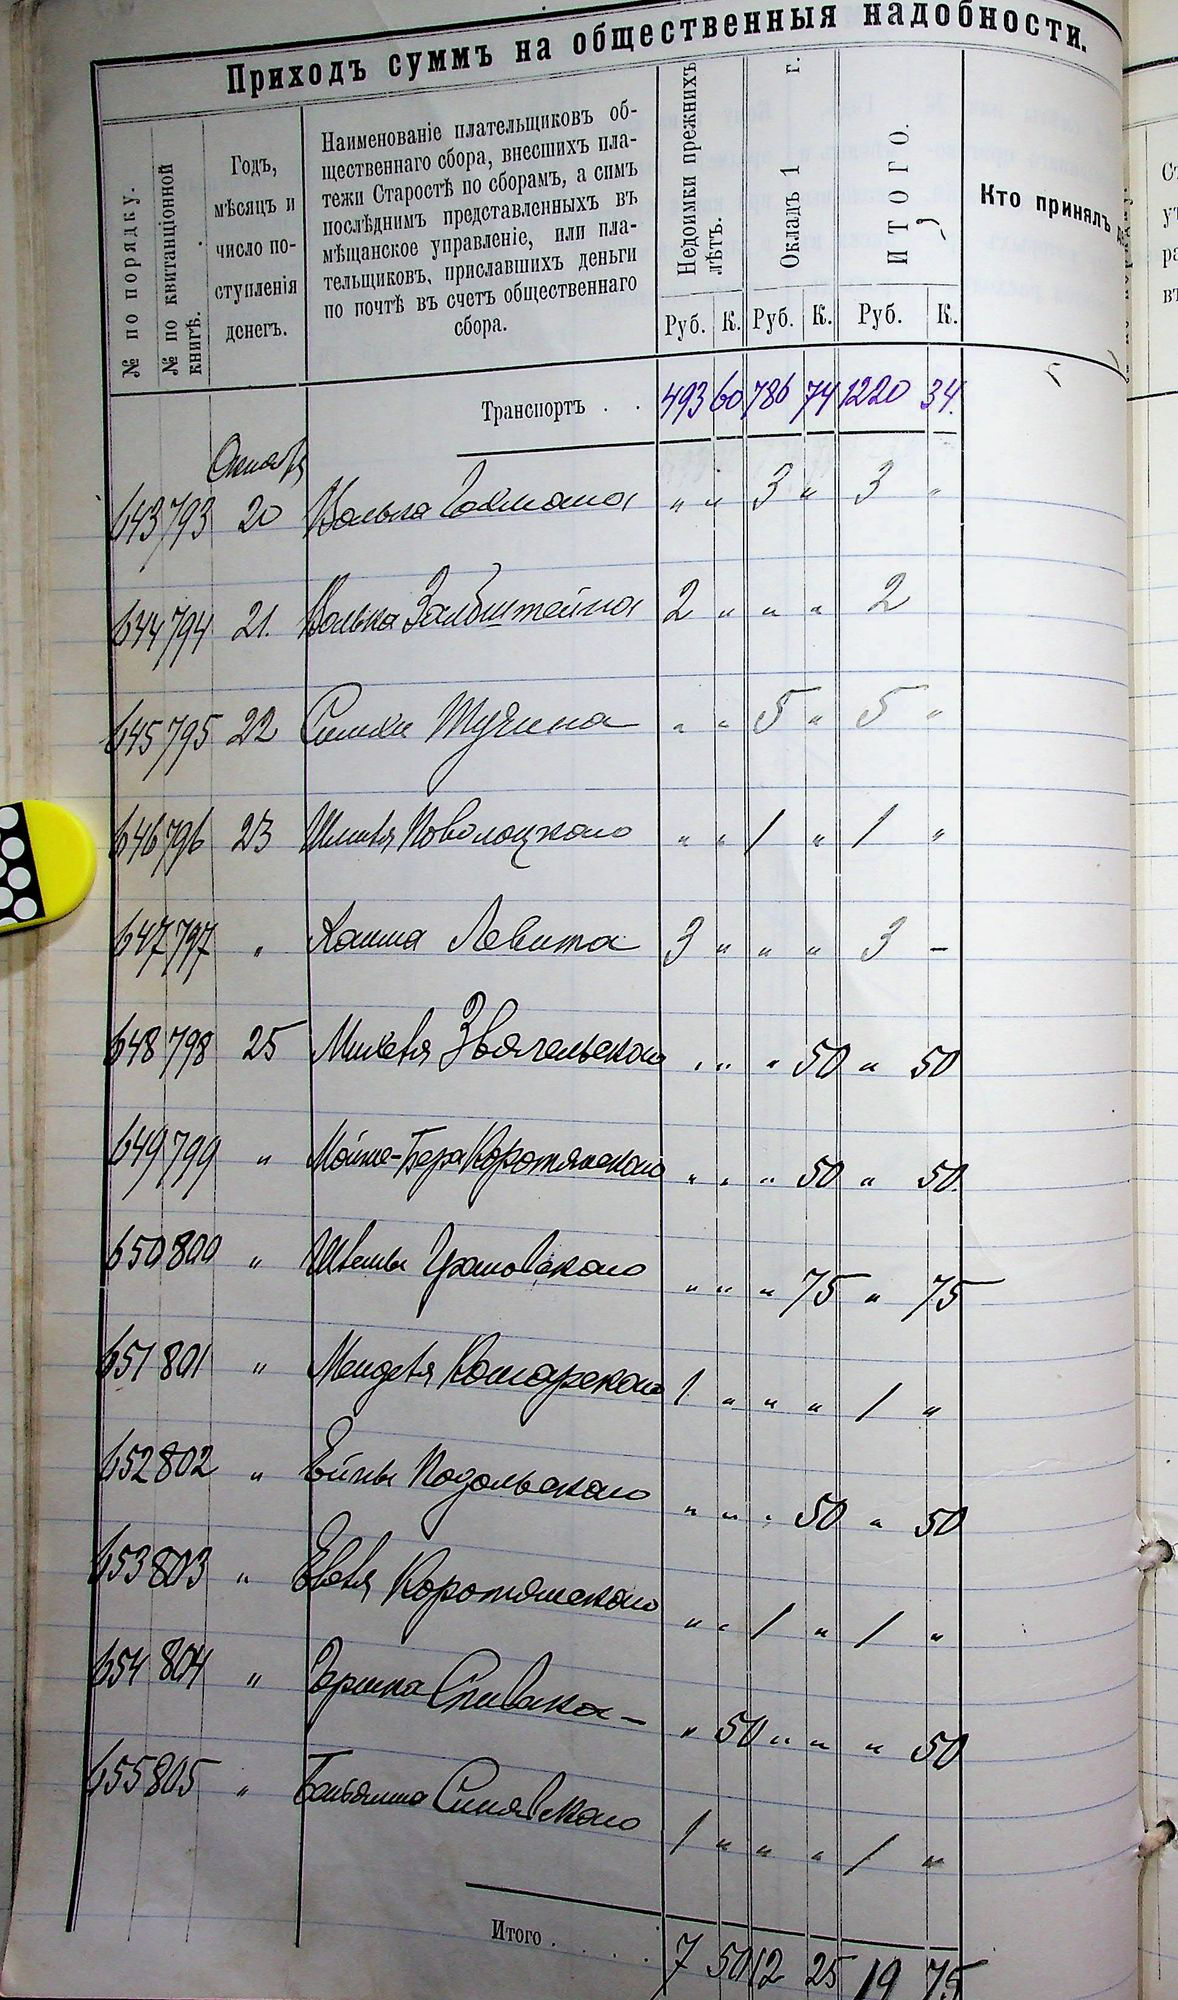 Приходъ суммъ на общественныя надобности.
№ по порядку.
№ по квитанціонной
книгѣ.
Годъ,
мѣсяцъ и
число по-
ступленія
денегъ.
Наименованіе плательщиковъ об-
щественнаго сбора, внесшихъ пла-
тежи Старостѣ по сборамъ, а симъ
послѣднимъ представленныхъ въ
мѣщанское управленіе, или пла-
тельщиковъ, приславшихъ деньги
по почтѣ въ счетъ общественнаго
сбора.
Недоимки прежнихъ
лѣтъ.
Окладъ 1 г.
ИТОГО.
Кто принялъ
Руб. К. Руб. К. Руб. К.
Транспортъ . . 493 60 786 74 1220 34.
Октября
643 793 20 Волька " " 3 " 3 "
644 794 21. Волька Зальбштейна 2 " " " 2
645 795 22 Симхи Щупина " " 5 " 5 "
646 796 23 Шмиля Поволоцкаго " " 1 " 1 "
647 797 " Хаима Левита 3 " " " 3 –
648 798 25 Михеля Звягельскаго " " " 50 " 50
649 799 " Мойше-Бера Коротянскаго " " " 50 " 50.
650 800 " " " " 75 " 75
651 801 " Менделя Комарскаго 1 " " " 1 "
652 802 " Подольскаго " " " 50 " 50
653 803 " Коротянскаго " " 1 " 1 "
654 804 " Гершка Спивака – " 50 " " " 50
655 805 " Беньямина Синявскаго 1 " " " 1 "
Итого . . . . 7 50 12 25 19 75